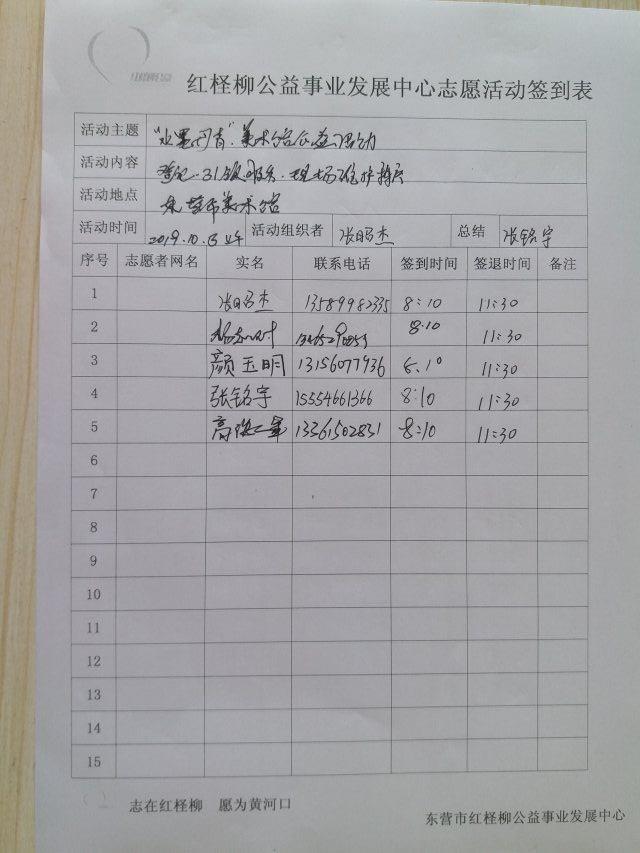 红柽柳公益事业发展中心志愿活动签到表
活动主题 美术馆公益活动
活动内容
活动地点 东营市美术馆
活动时间 2019.10.13 上午 活动组织者 张昭杰 总结 张铭宇
序号 志愿者网名 实名 联系电话 签到时间 签退时间 备注
1 张昭杰 13589982335 8:10 11:30
2 8:10 11:30
3 颜玉明 13156077936 8:10 11:30
4 张铭宇 15554661366 8:10 11:30
5 13361502831 8:10 11:30
6
7
8
9
10
11
12
13
14
15
志在红柽柳 愿为黄河口
东营市红柽柳公益事业发展中心